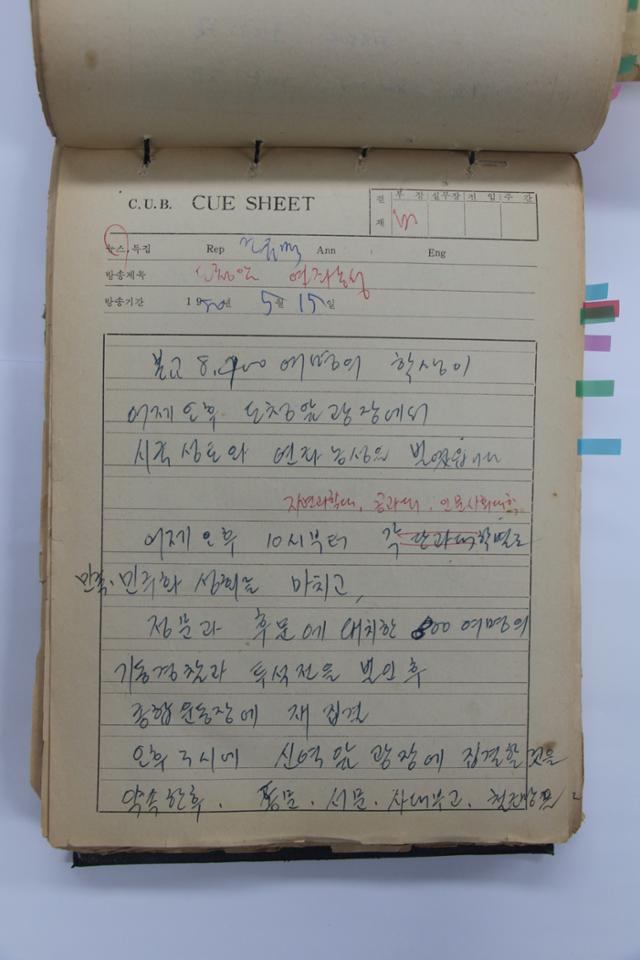 C.U.B. CUE SHEET
결재 부장 실무장 전임 주간
뉴스, 특집 Rep Ann Eng
방송제목 도청앞 연좌농성
방송기간 1980년 5월 15일
본교 8,000 여명의 학생이
어제 오후 도청앞 광장에서
시국 성토와 연좌 농성을 벌였읍니다
자연과학대, 공과대, 인문사회대학
어제 오후 10시부터 각 단과대학별로
민족·민주화 성회를 마치고,
정문과 후문에 대치한 800 여명의
기동경찰과 투석전을 벌인 후
종합운동장에 재 집결
오후 3시에 신역 앞 광장에 집결할 것을
약속한 후, 정문, 서문, 사대부고,